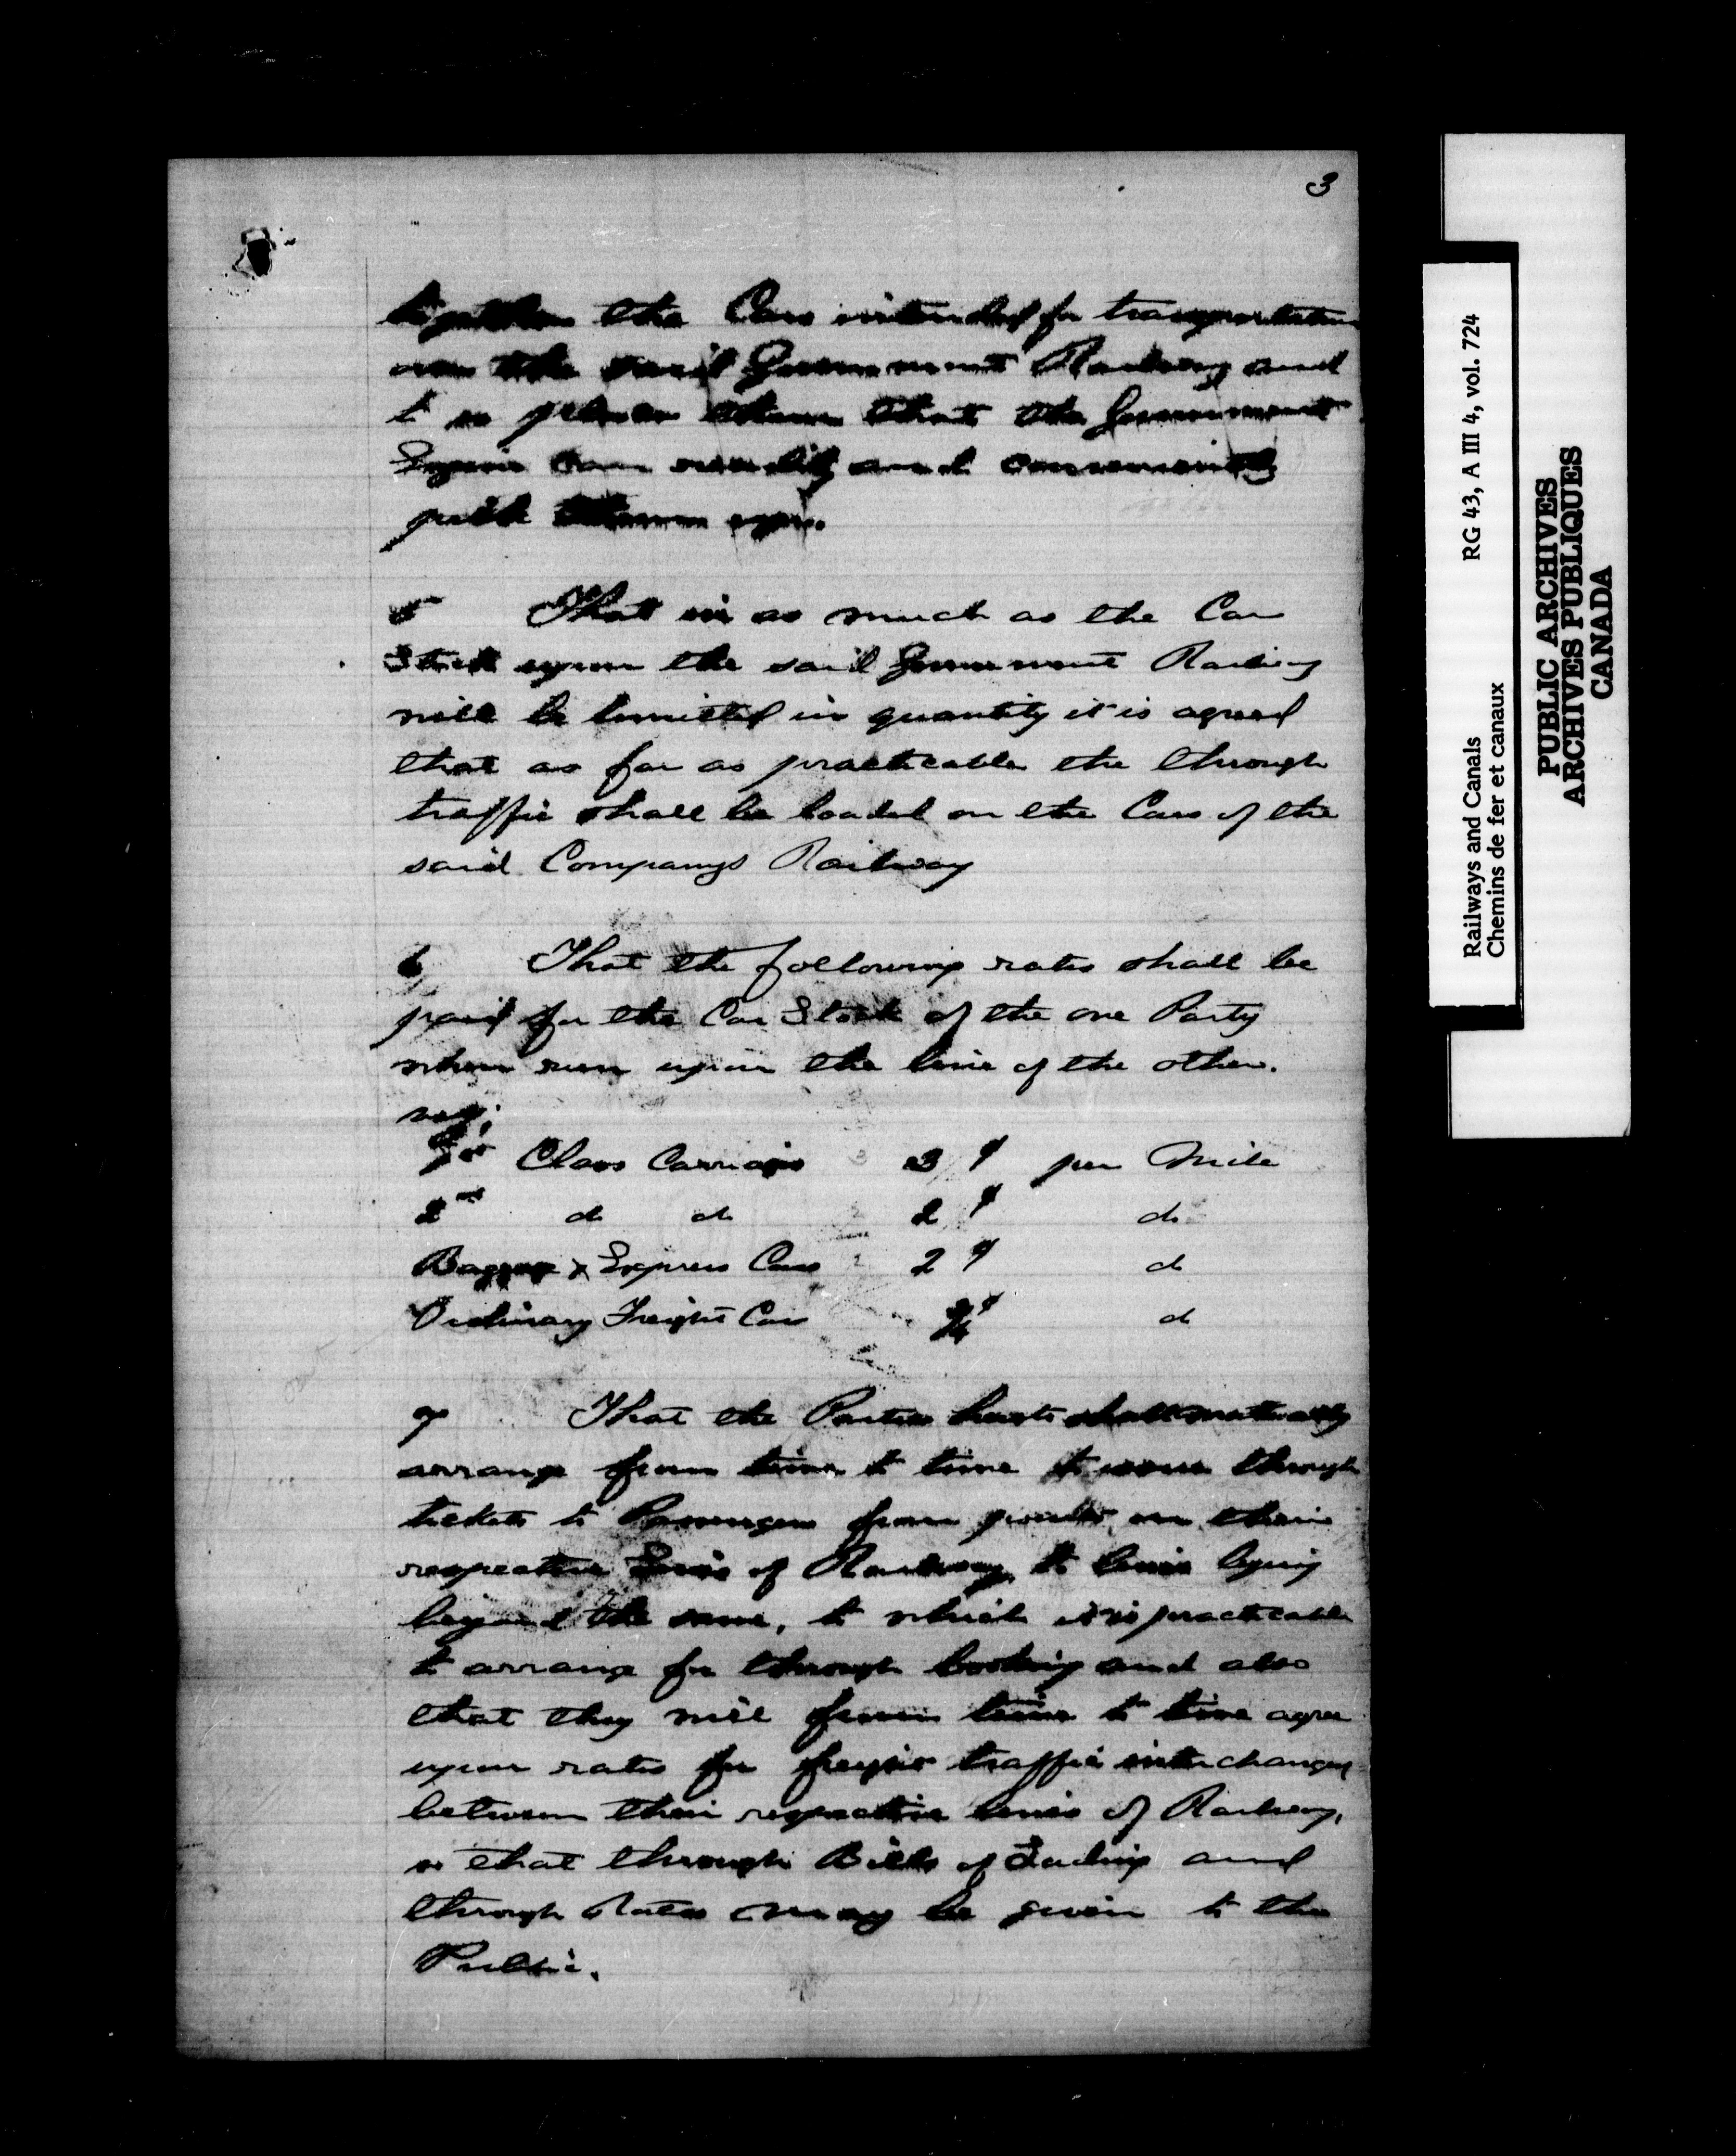 3
together the Cars intended for transportation
over the said Government Railway and
to so place them that the Government
Engine can readily and conveniently
pick them up.
5 That in as much as the Car
Stock upon the said Government Railway
will be limited in quantity it is agreed
that as far as practicable the through
traffic shall be loaded on the Cars of the
said Companys Railway
6 That the following rates shall be
paid for the Car Stock of the one Party
when run upon the line of the other.
viz;
1st Class Carriages 3 ¢ per Mile
2nd do do 2 ¢ do
Baggage & Express Cars 2 ¢ do
Ordinary Freight Cars 3/4 ¢ do
7 That the Parties hereto shall mutually
arrange from time to time to issue through
tickets to Passengers from points on their
respective Lines of Railway, to lines lying
beyond the same, to which it is practicable
to arrange for through booking and also
that they will from time to time agree
upon rates for freight traffic interchanged
between their respective lines of Railway,
so that through Bills of Lading and
through Rates may be given to the
Public.
RG 43, A III 4, vol. 724
Railways and Canals
Chemins de fer et canaux
PUBLIC ARCHIVES
ARCHIVES PUBLIQUES
CANADA